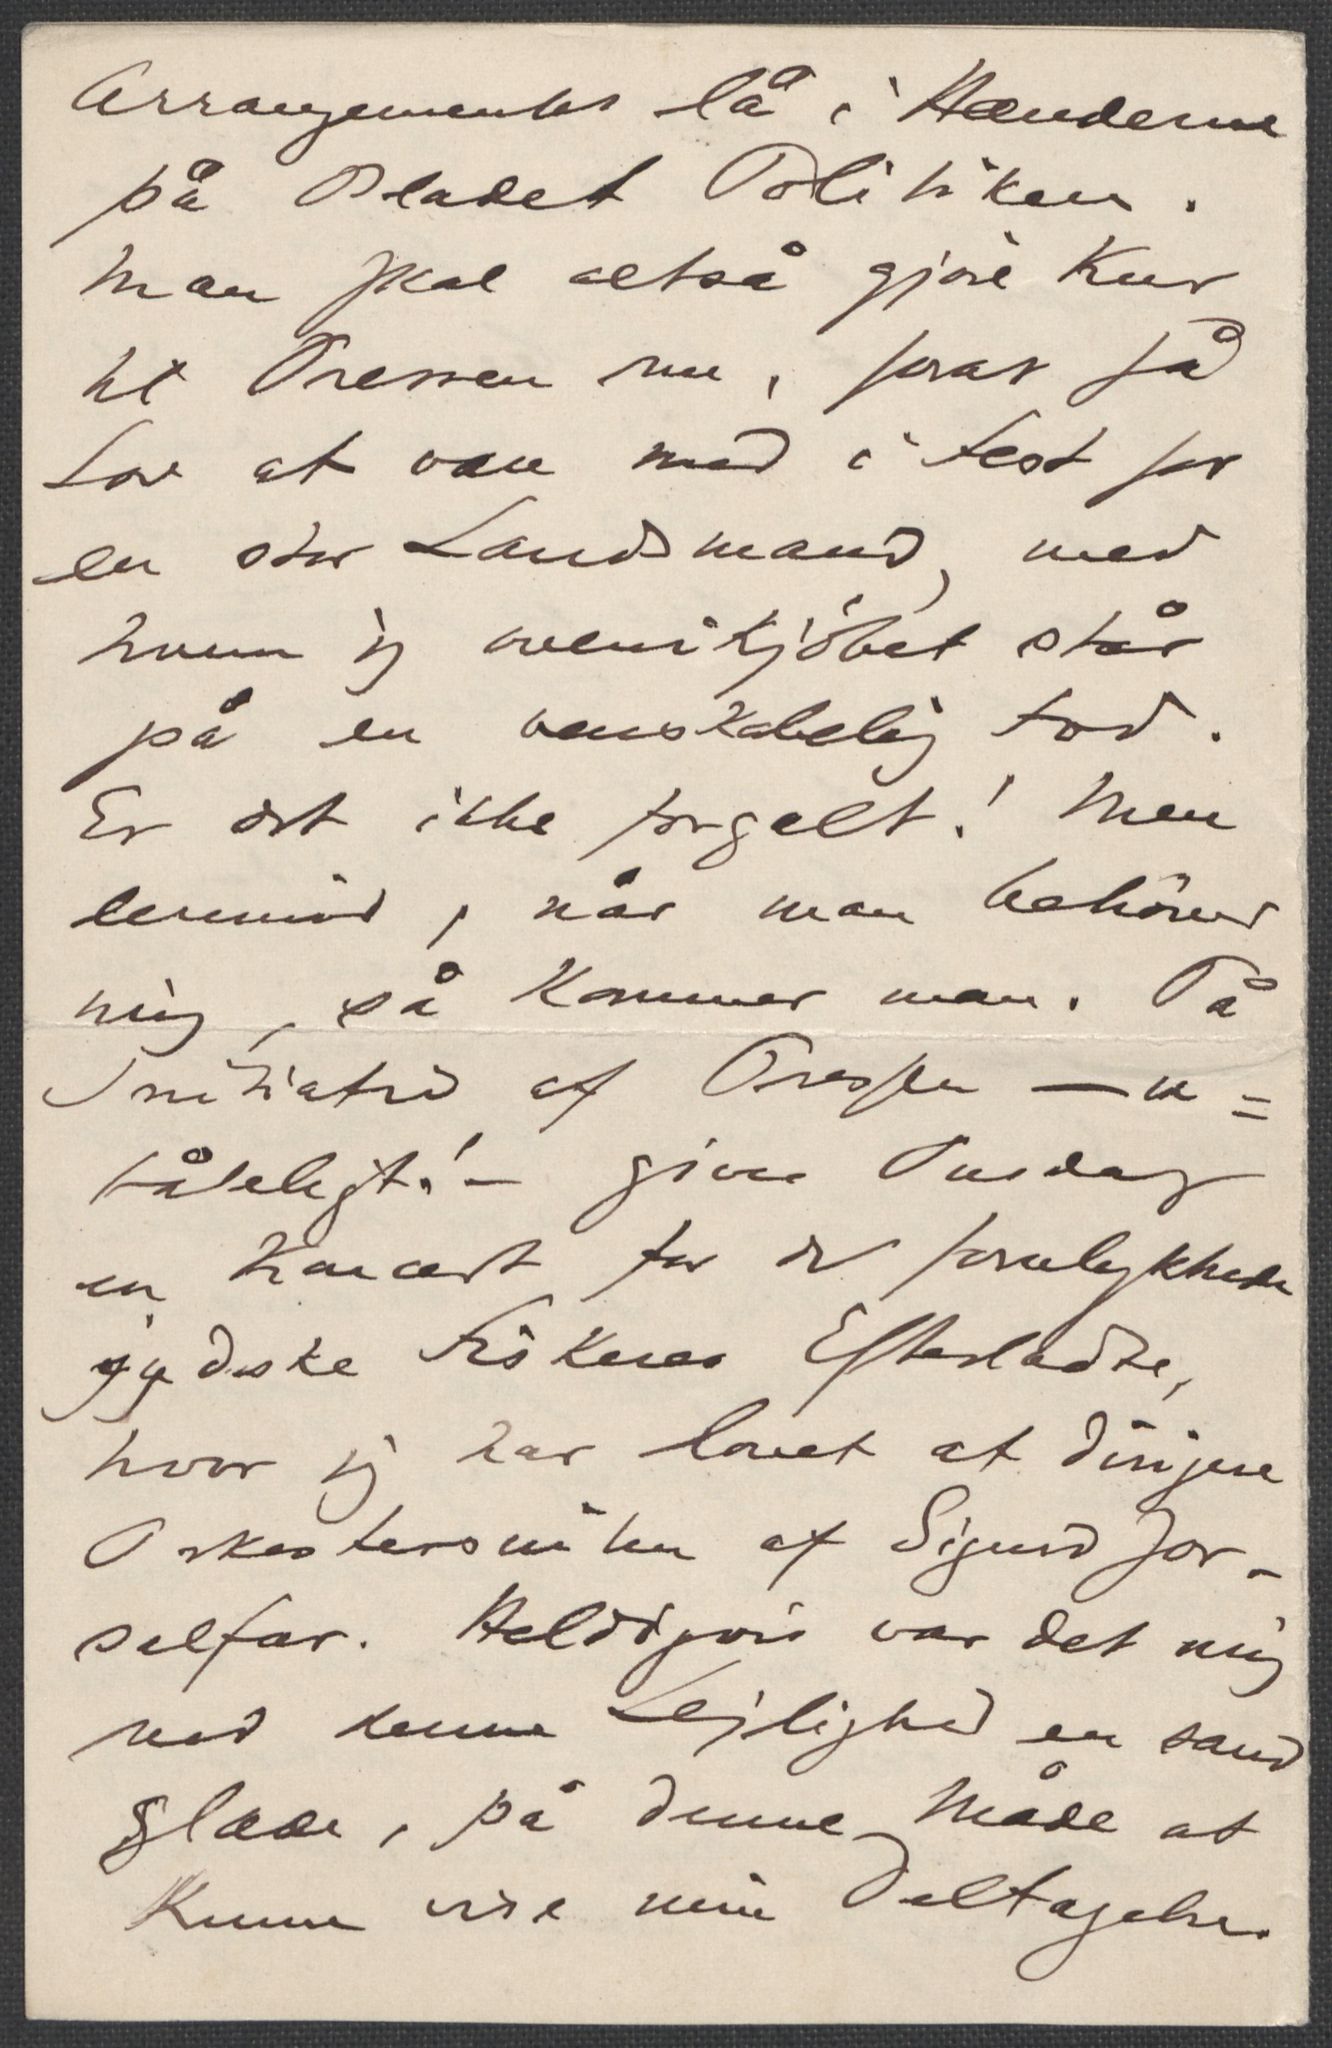 Arrangementet lå i Hænderne
på Bladet Politiken.
Man skal altså gjøre Kur
til Pressen nu, forat få
Lov at være med i Fest for
en stor Landsmand, med
hvem jeg ovenikjöbet står
på en venskabelig Fod.
Er det ikke forgalt! Men
, når man behöver
mig, så kommer man. På
Initiativ af Pressen — u=
tåleligt! – gives Onsdag
en Koncert for de forulykkede
jydske Fiskeres Efterladte,
hvor jeg har lovet at dirigere
Orkestersuiten af Sigurd Jor-
salfar. Heldigvis var det mig
ved denne Lejlighed en sand
Glæde, på denne Måde at
kunne vise min Deltagelse.